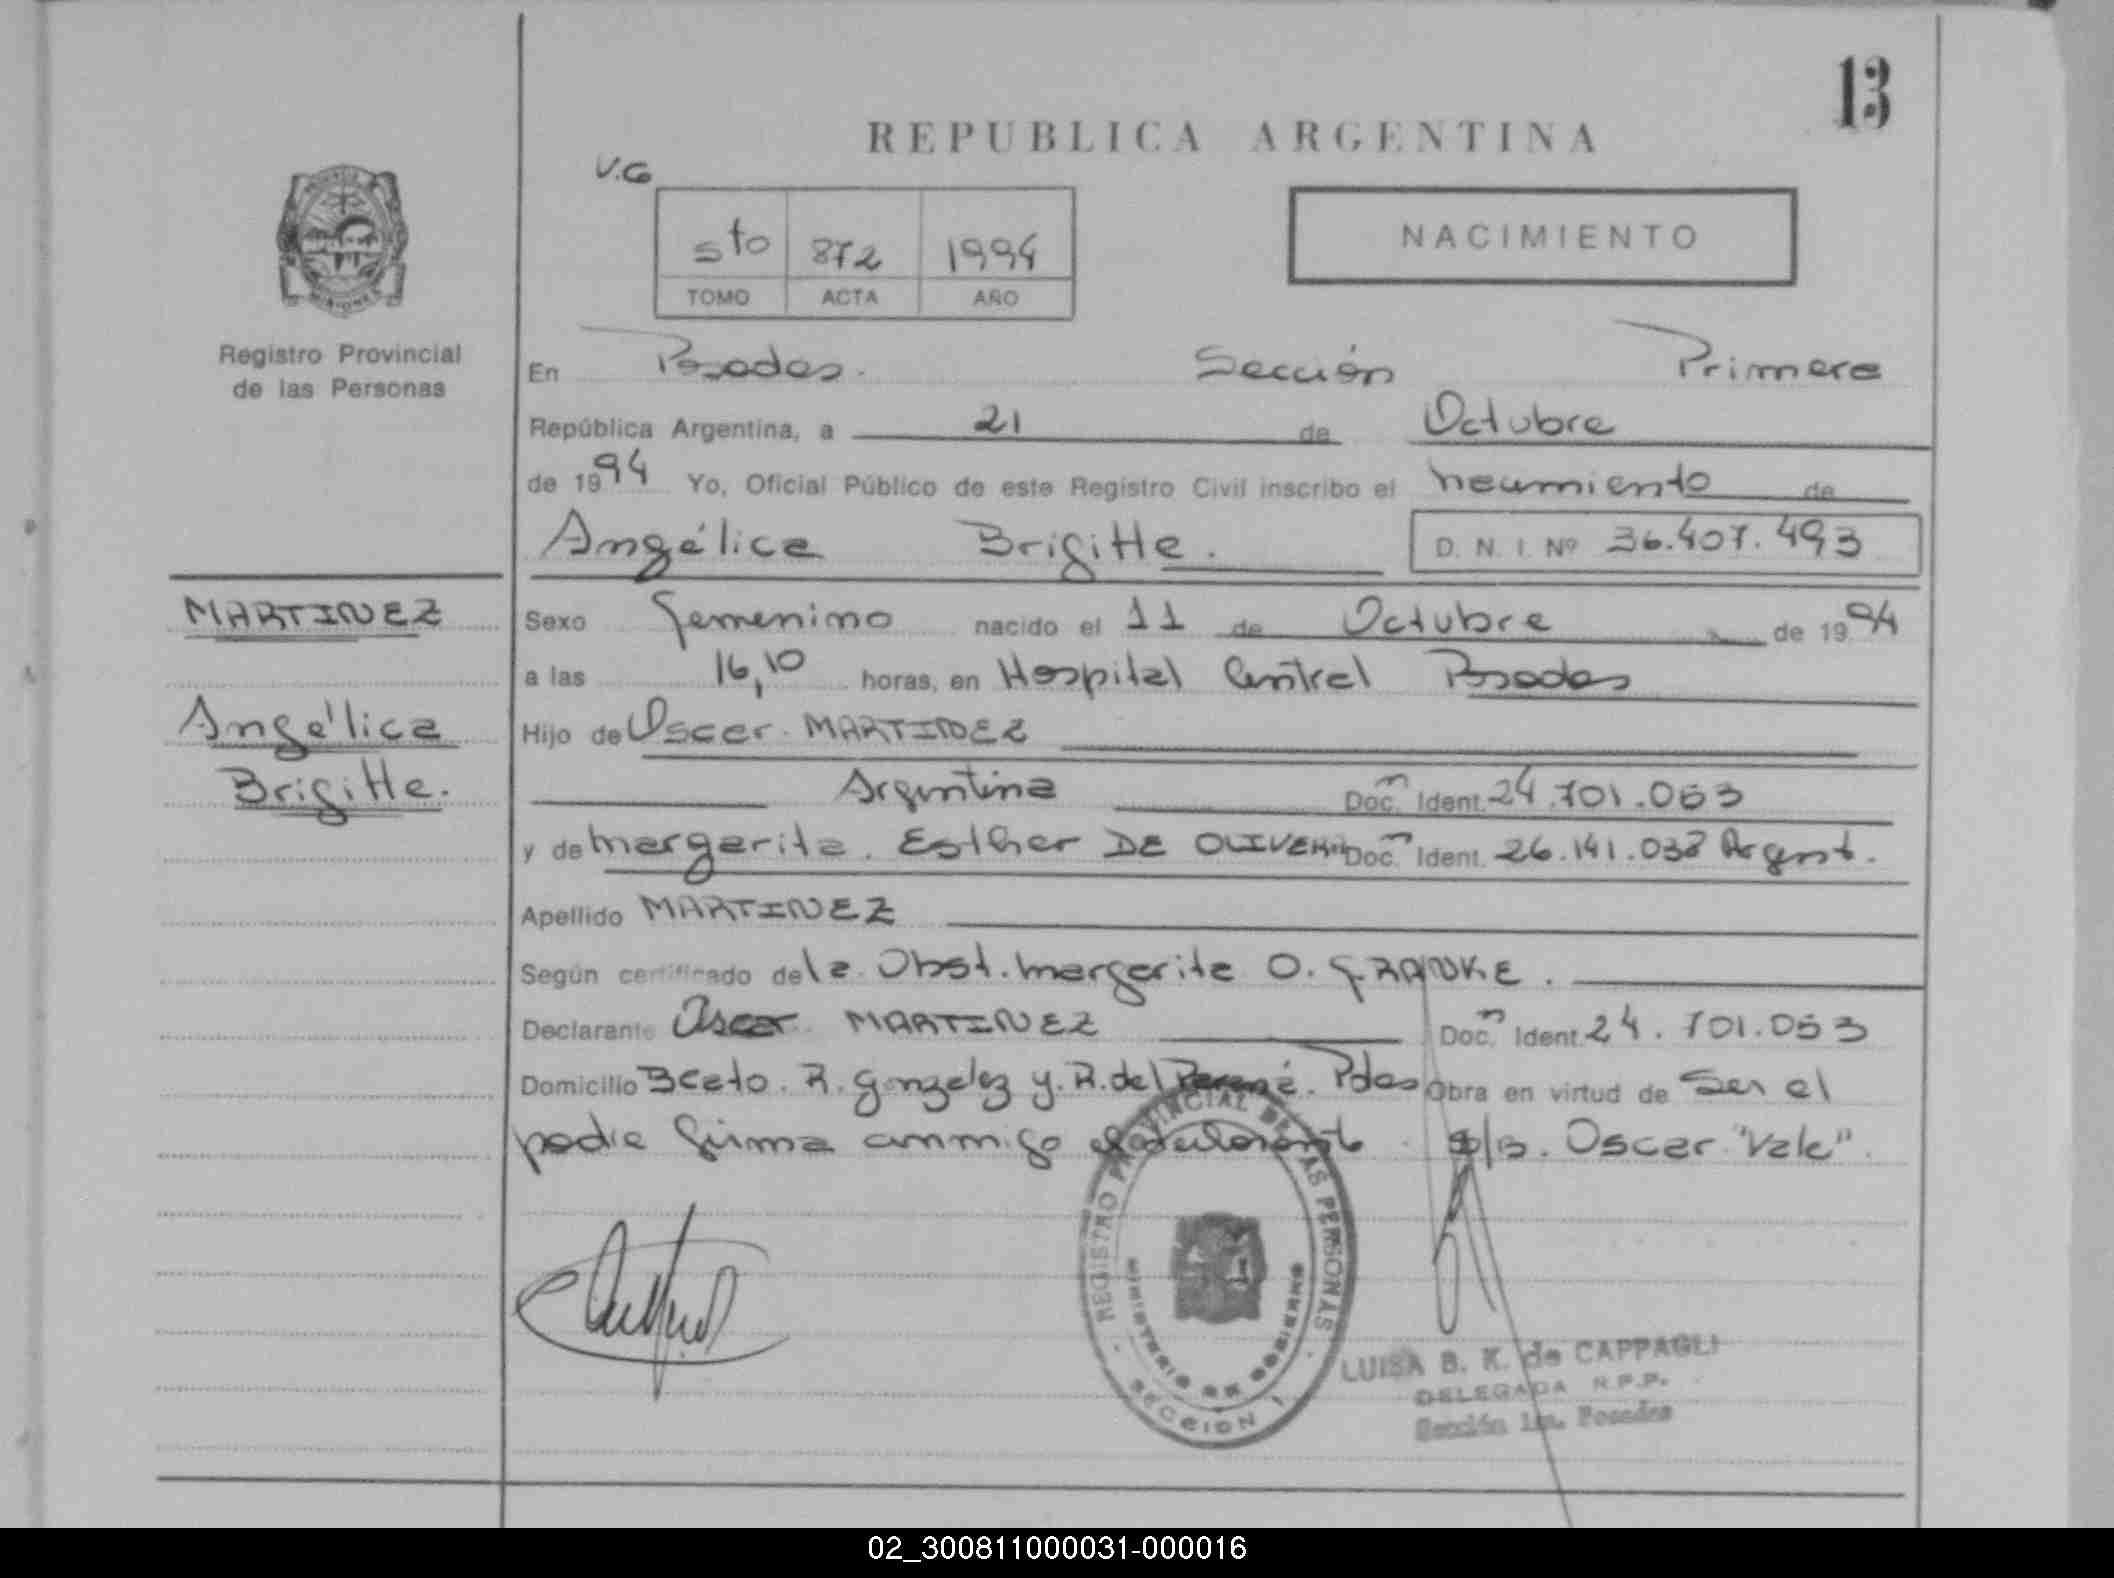 13
REPUBLICA ARGENTINA
V.G
5to 872 1994
TOMO ACTA AÑO
NACIMIENTO
Registro Provincial
de las Personas
En Posadas. Sección Primera
República Argentina, a 21 de Octubre
de 1994 Yo, Oficial Público de este Registro Civil inscribo el nacimiento de
Angélica Brigitte. D. N. I. Nº 36.407.493
MARTINEZ
Angélica
Brigitte.
Sexo Femenino nacido el 11 de Octubre de 1994
a las 16,10 horas, en Hospital Central Posadas
Hijo de Oscar. MARTINEZ
Argentina Doc. Ident. 24.701.053
y de Margarita. Esther DE OLIVEIRA Doc. Ident. 26.141.038 Argent.
Apellido MARTINEZ
Según certificado de la Obst. Margarita O. FRANKE.
Declarante Oscar MARTINEZ Doc. Ident. 24.701.053
Domicilio Bceto. R. Gonzalez y. R. del Paraná. Pdas Obra en virtud de Ser el
padre firma conmigo el declarante. s/b. Oscar "Vale".
REGISTRO PROVINCIAL DE LAS PERSONAS
MINISTERIO DE GOBIERNO
SECCION 1
LUISA B. K. de CAPPAGLI
DELEGADA R.P.P.
Sección 1a. Posadas
02_300811000031-000016